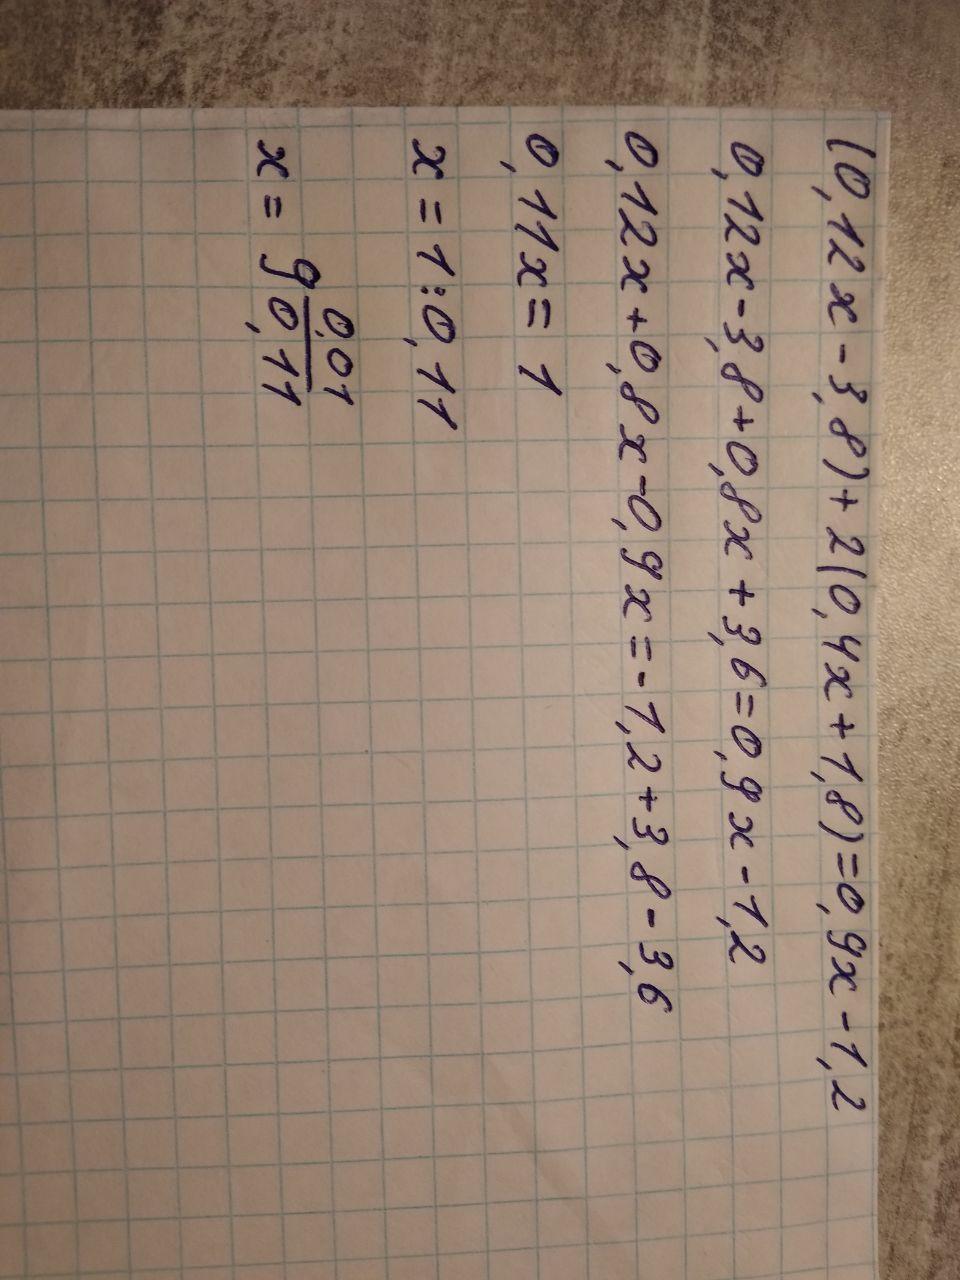 (0,12x-3,8)+2(0,4x+1,8)=0,9x-1,2
0,12x-3,8+0,8x+3,6=0,9x-1,2
0,12x+0,8x-0,9x=-1,2+3,8-3,6
0,11x=1
x=1:0,11
x=9 0,01/0,11